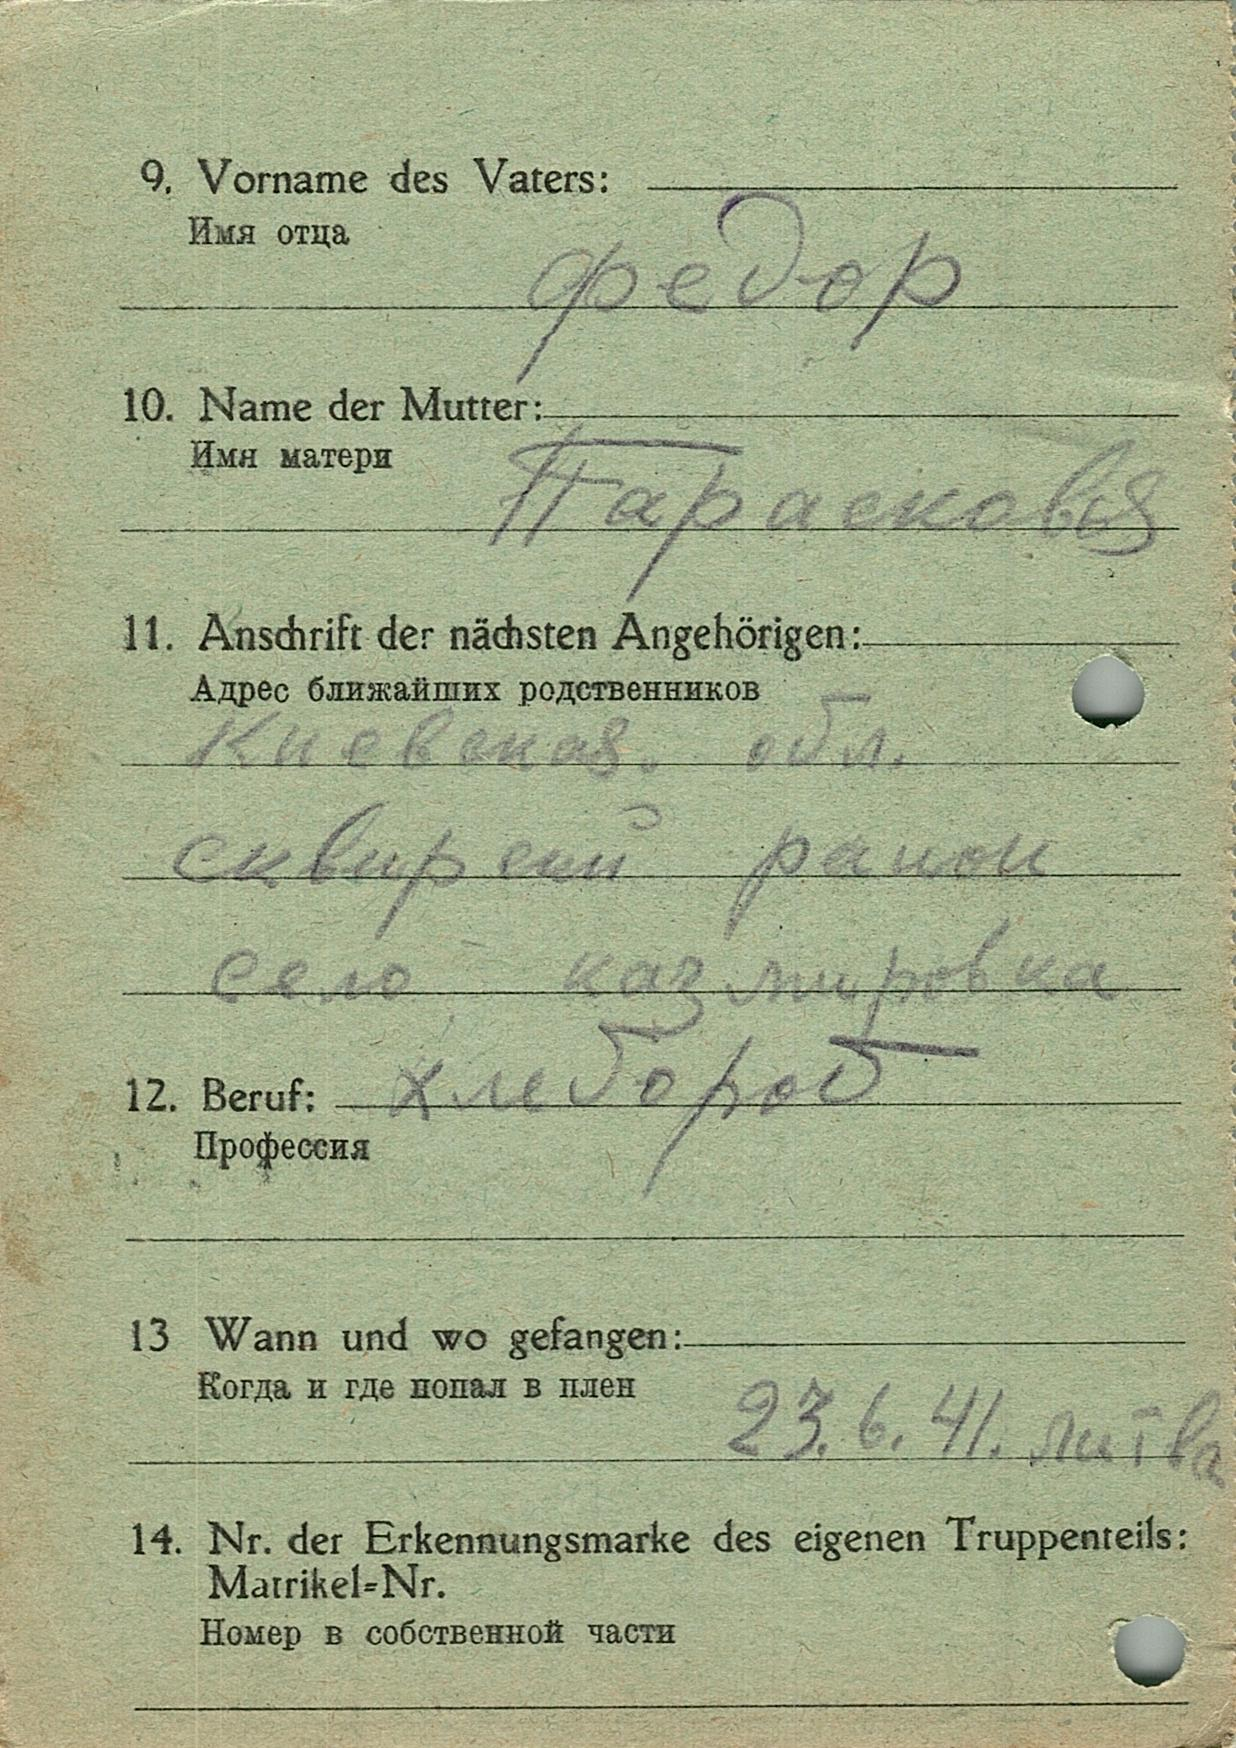 9. Vorname des Vaters:
Имя отца
федор
10. Name der Mutter:
Имя матери
Парасковья
11. Anschrift der nächsten Angehörigen:
Адрес ближайших родственников
Киевская. обл.
сквирский район
село казмировка
12. Beruf: хлебороб
Профессия
13 Wann und wo gefangen:
Когда и где попал в плен
23.6.41. литва
14. Nr. der Erkennungsmarke des eigenen Truppenteils:
Matrikel=Nr.
Номер в собственной части